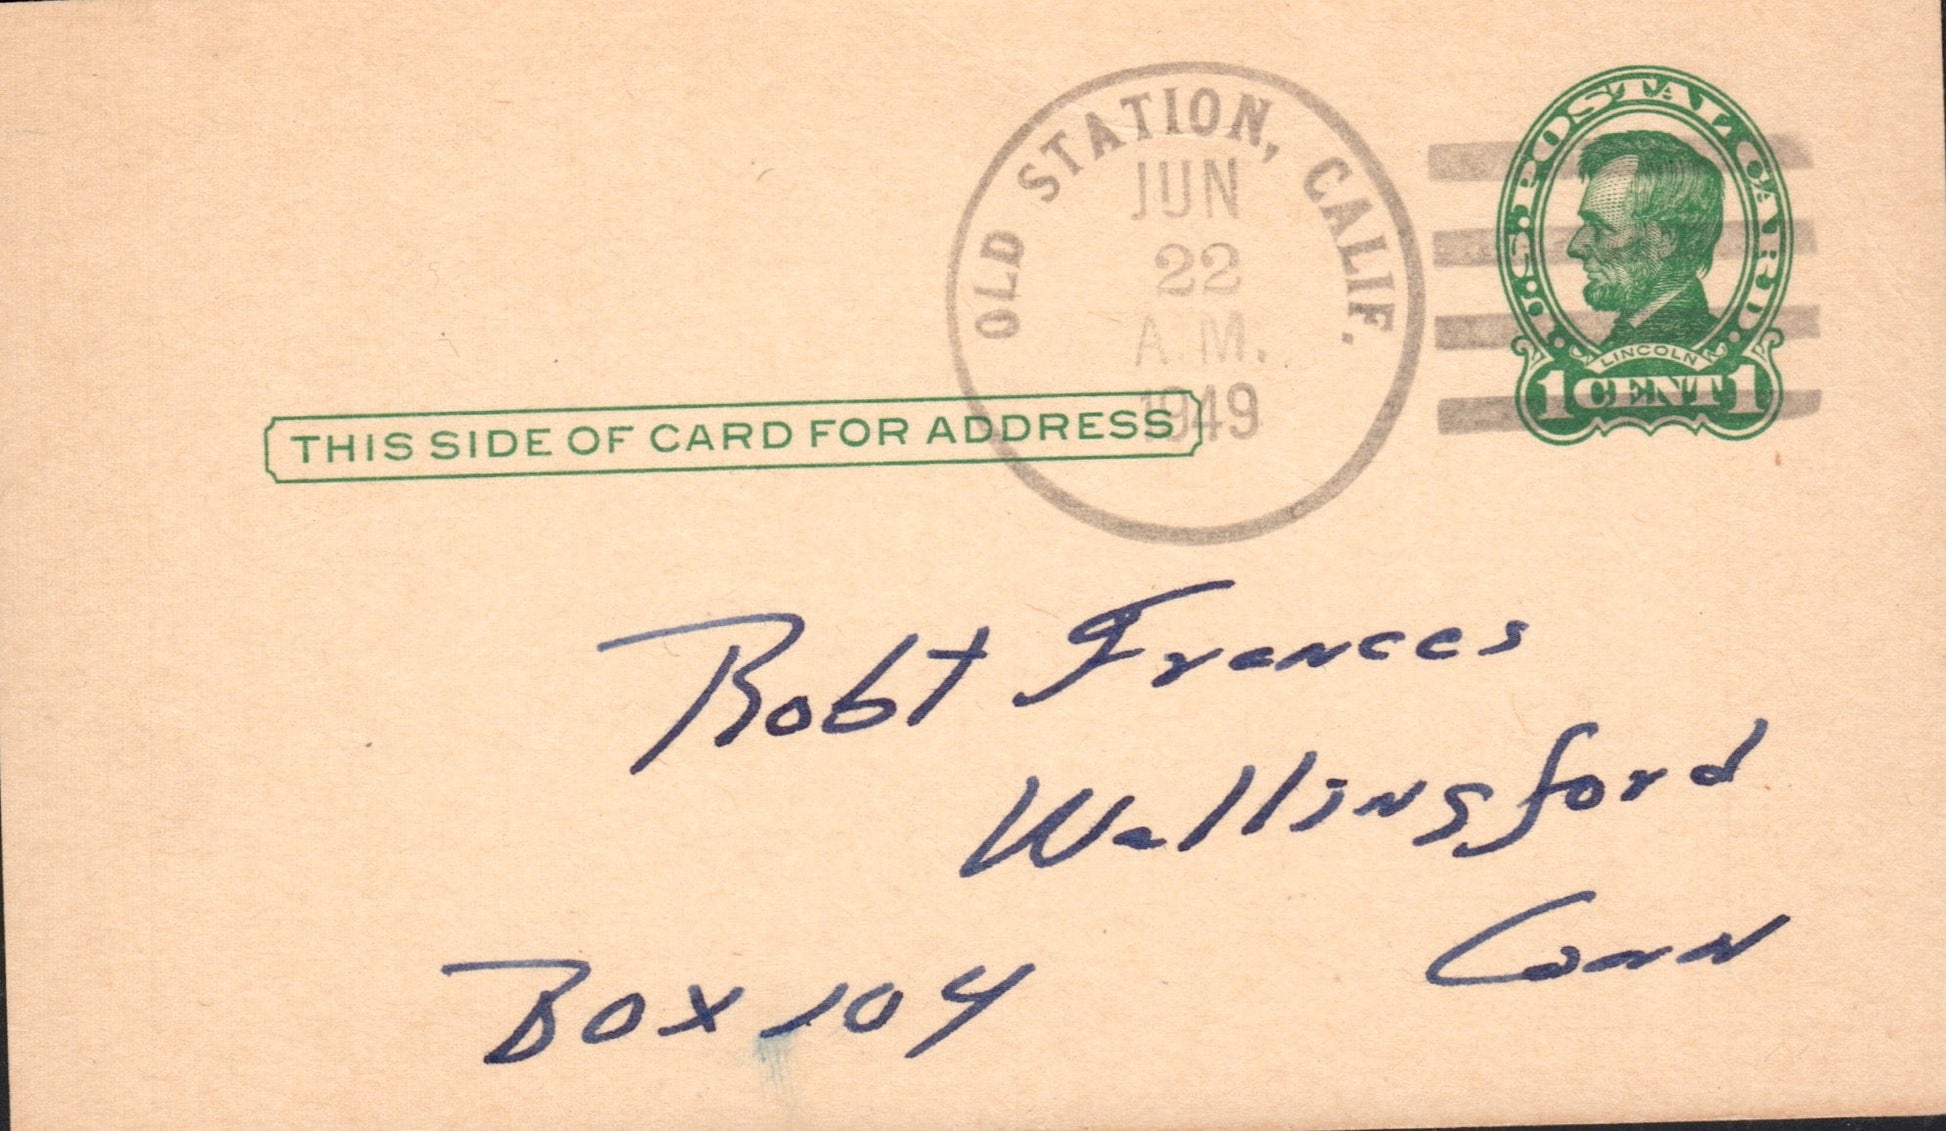 OLD STATION, CALIF.
JUN
22
A.M.
1949
U.S. POSTAL CARD.
LINCOLN
1 CENT 1
THIS SIDE OF CARD FOR ADDRESS
Robt Frances
Wallingford
Conn
Box 104